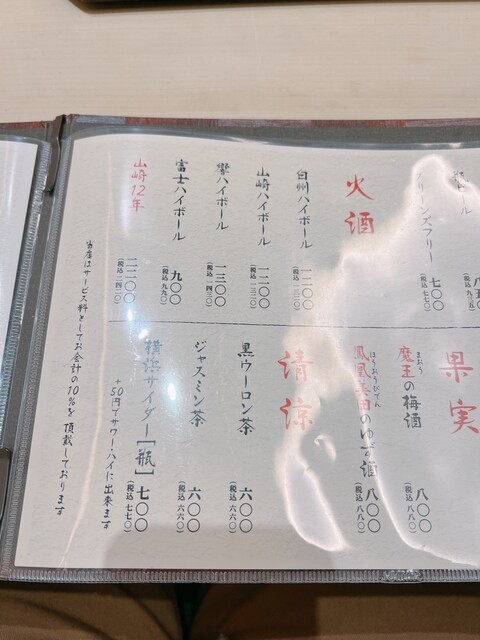 ール 八五〇
(税込 九三五)
グリーンズフリー 七〇〇
(税込 七七〇)
火酒
白州ハイボール 一二〇〇
(税込 一三二〇)
山崎ハイボール 一二〇〇
(税込 一三二〇)
響ハイボール 一三〇〇
(税込 一四三〇)
富士ハイボール 九〇〇
(税込 九九〇)
山崎12年 二二〇〇
(税込 二四二〇)
果実
まおう
魔王の梅酒 八〇〇
(税込 八八〇)
ほうおうびでん
鳳凰美田のゆず酒 八〇〇
(税込 八八〇)
清涼
黒ウーロン茶 六〇〇
(税込 六六〇)
ジャスミン茶 六〇〇
(税込 六六〇)
横浜サイダー[瓶] 七〇〇
(税込 七七〇)
+50円でサワー・ハイに出来ます
当店はサービス料としてお会計の10%を頂戴しております